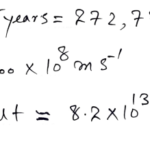 years = 272,7
00 × 10⁸ m s⁻¹
ut = 8.2×10¹³